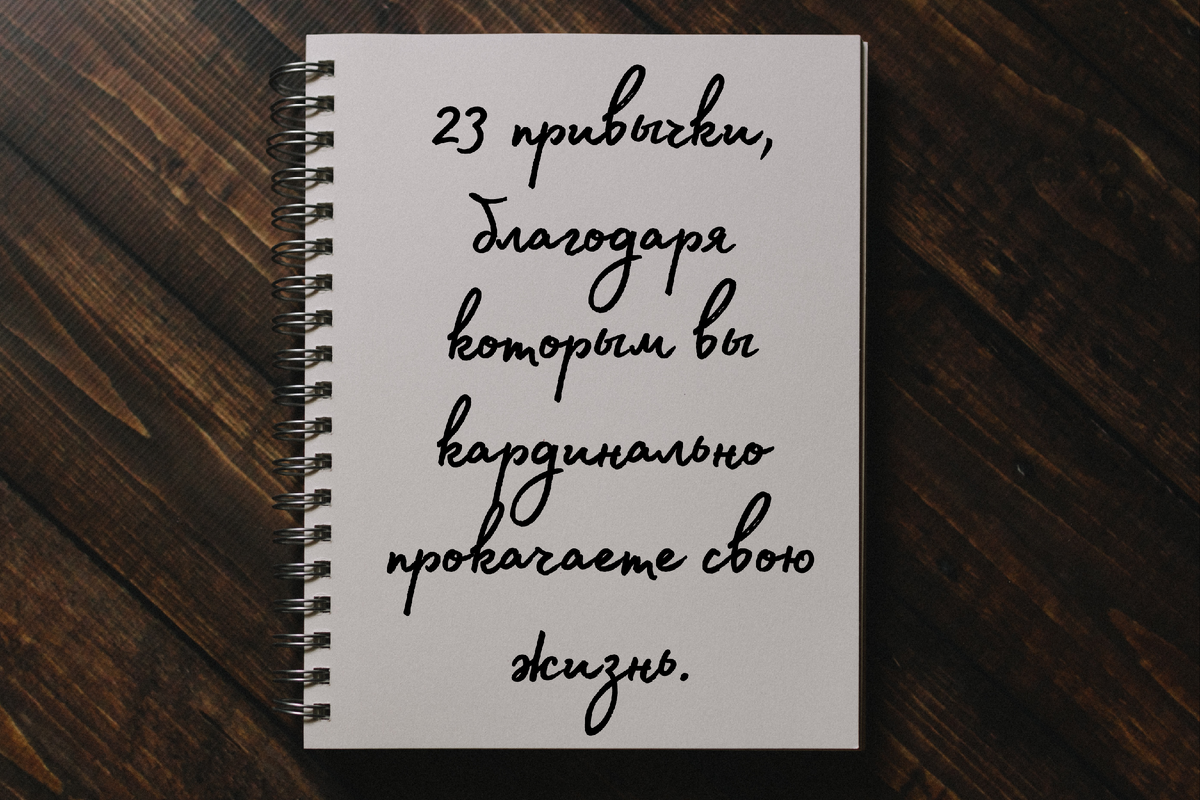 23 привычки,
благодаря
которым вы
кардинально
прокачаете свою
жизнь.